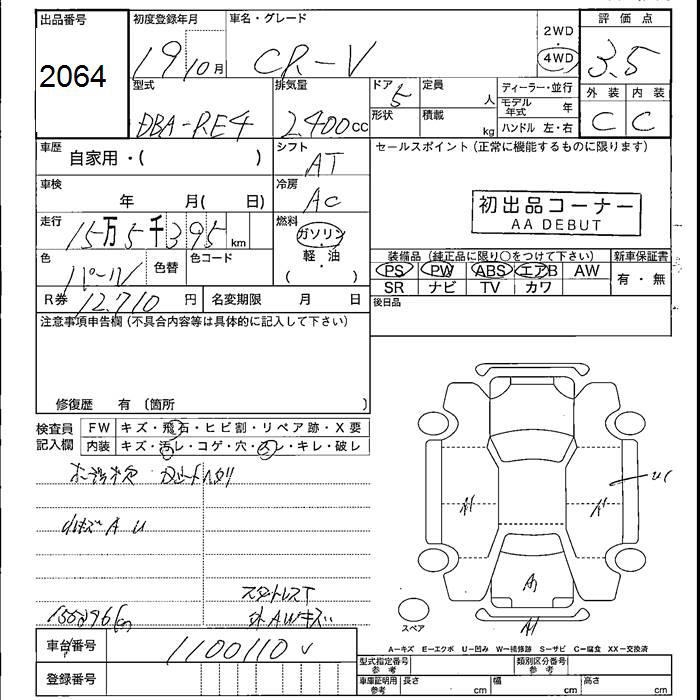 出品番号
2064
初度登録年月
19 10月
車名・グレード
CR-V
2WD
4WD
評価点
3.5
型式
DBA-RE4
排気量
2,400cc
ドア 5
定員
人
形状
積載
kg
ディーラー・並行
モデル年式 年
ハンドル 左・右
外装 内装
C C
車歴
自家用・( )
シフト
AT
セールスポイント(正常に機能するものに限ります)
車検
年 月( 日)
冷房
AC
初出品コーナー
AA DEBUT
走行
15万5千395km
燃料
ガソリン
・
軽・油
( )
色
パール
色替
色コード
装備品(純正品に限り○をつけて下さい)
新車保証書
PS PW ABS エアB AW
SR ナビ TV カワ
有・無
R券 12,710円
名変期限 月 日
後日品
注意事項申告欄(不具合内容等は具体的に記入して下さい)
修復歴 有 (箇所 )
検査員
記入欄
FW キズ・飛石・ヒビ割・リペア跡・X要
内装 キズ・汚レ・コゲ・穴・スレ・キレ・破レ
小キズ A U
スタットレスT
外AWキズ
スペア
A=キズ E=エクボ U=凹み W=補修跡 S=サビ C=腐食 XX=交換済
車台番号
1100110
登録番号
型式指定番号
参考
類別区分番号
参考
車庫証明用
参考
長さ cm
幅 cm
高さ cm